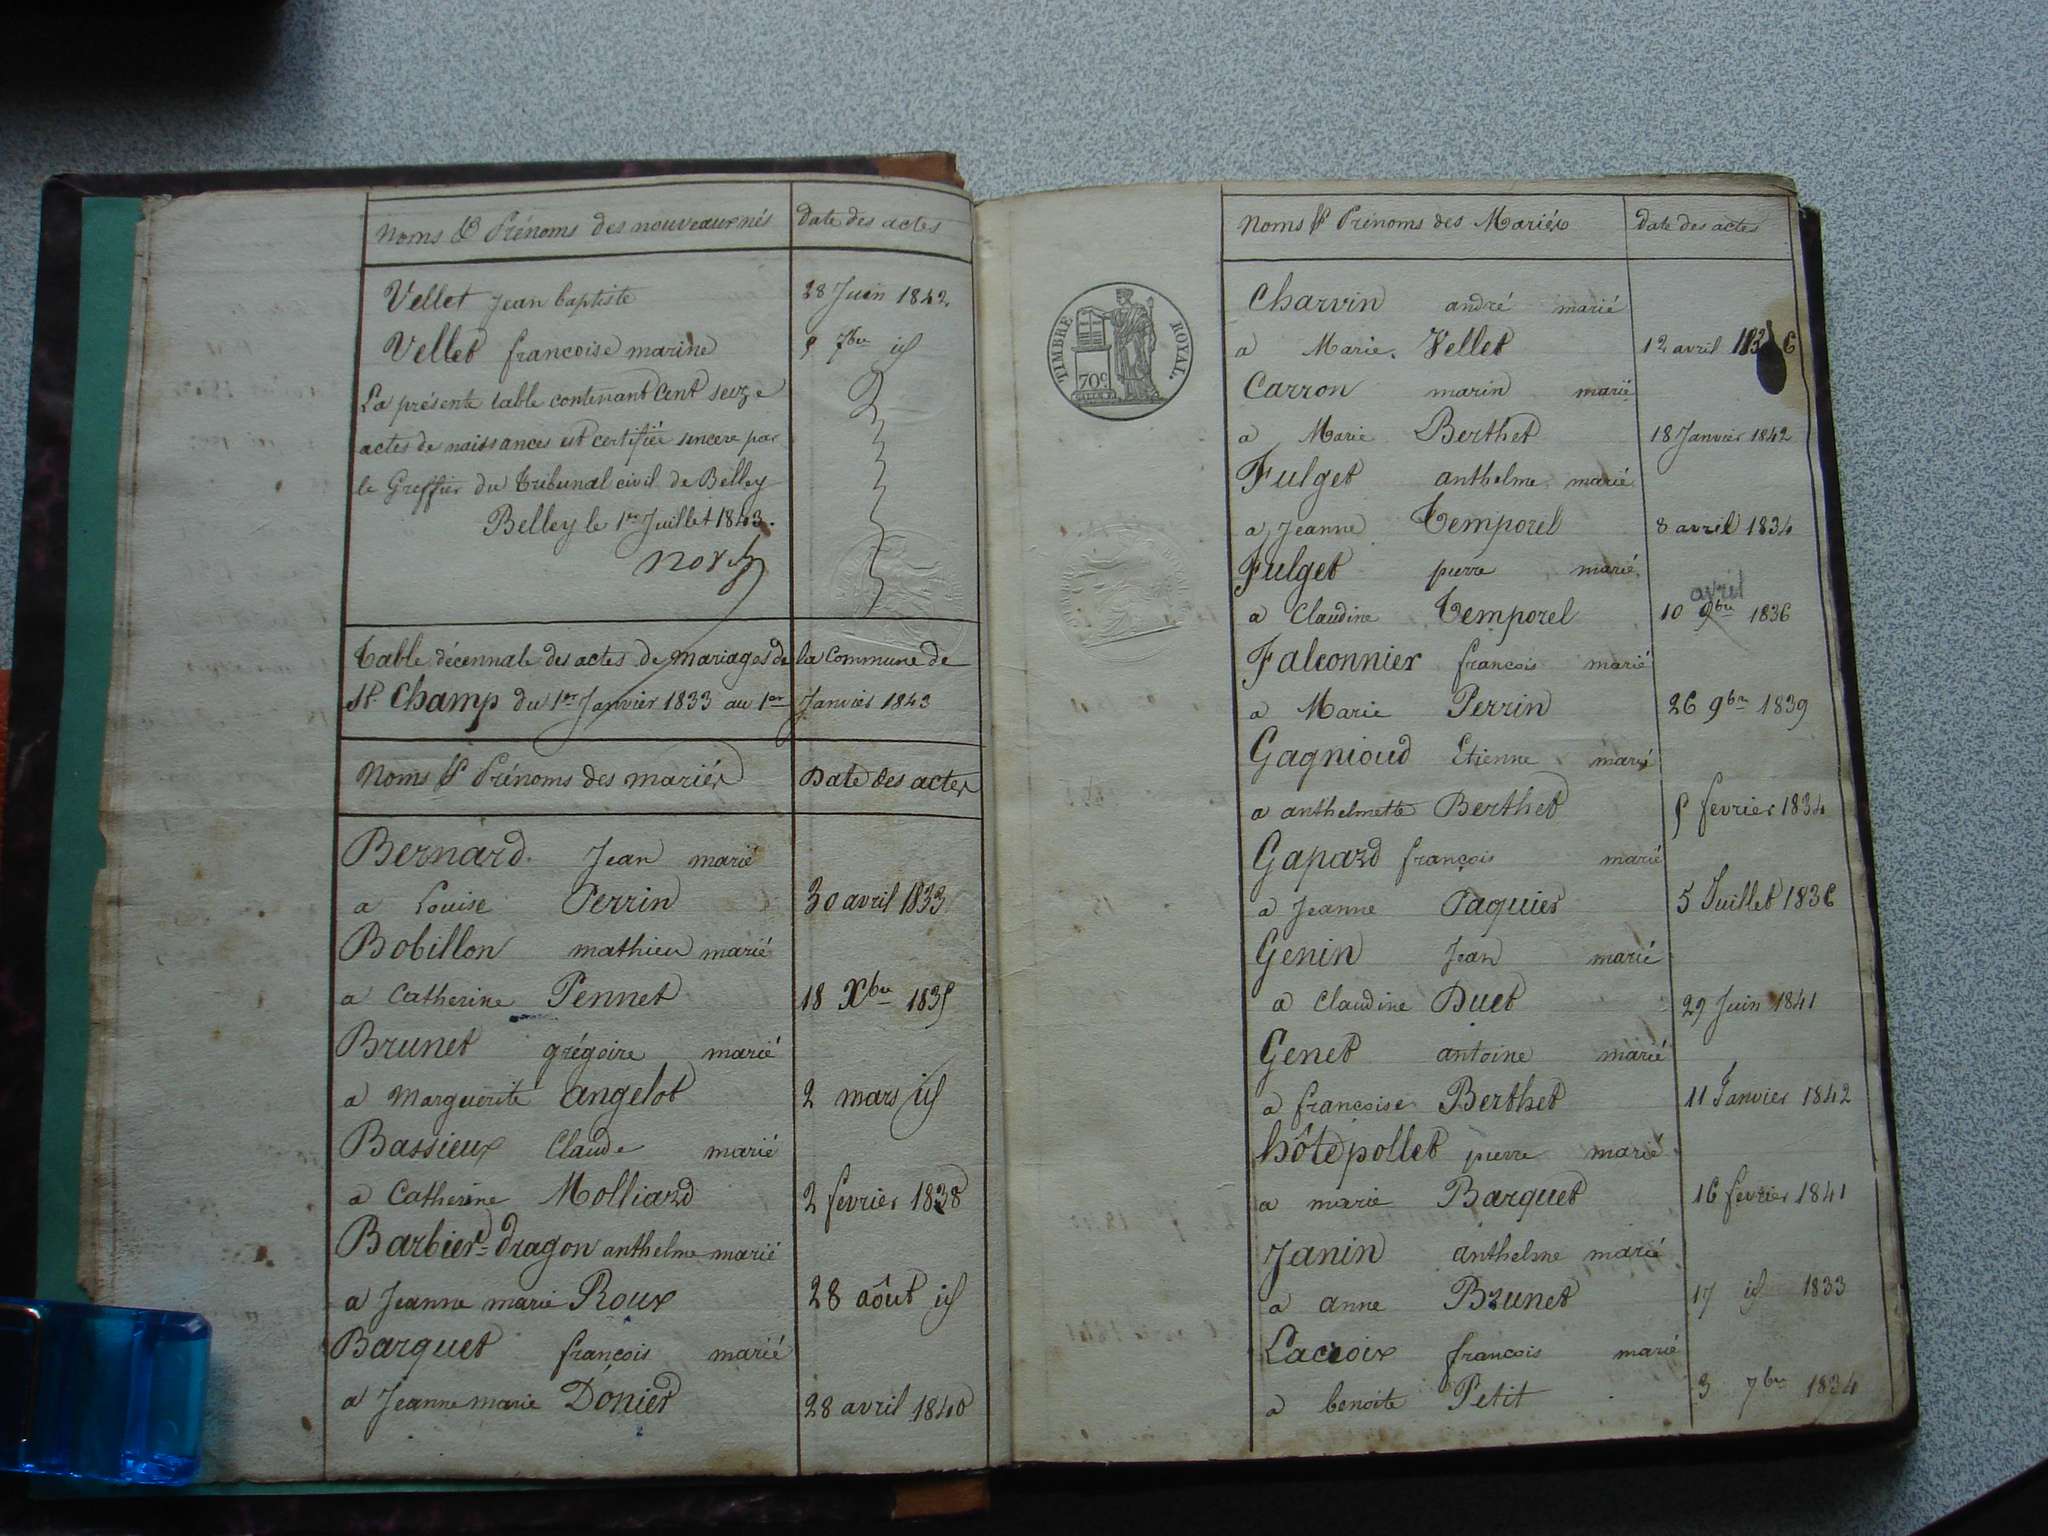 Noms & Prénoms des nouveaux nés Date des actes
Vellet Jean baptiste 28 Juin 1842
Vellet francoise marine 5 7bre id
La présente table contenant Cent seize
actes de naissances est certifiée sincere par
le Greffier du Tribunal civil de Belley
Belley le 1er Juillet 1843.
Table décennale des actes de mariages de la Commune de
St Champ du 1er Janvier 1833 au 1er Janvier 1843
Noms & Prénoms des mariés Date des actes
Bernard Jean marié
a Louise Perrin 30 avril 1833
Bobillon mathieu marié
a Catherine Pennet 18 Xbre 1835
Brunet grégoire marié
a Marguerite angelot 2 mars id
Bassieux Claude marié
a Catherine Molliard 2 fevrier 1838
Barbier-dragon anthelme marié
a Jeanne marie Roux 28 aôut id
Barquet françois marié
a Jeanne marie Donier 28 avril 1840
Noms & Prénoms des Mariés Date des actes
TIMBRE ROYAL.
70c
Charvin andré marié
a Marie Vellet 12 avril 1836
Carron marin marié
a Marie Berthet 18 Janvier 1842
Fulget anthelme marié
a Jeanne Temporel 8 avril 1834
Fulget pierre marié
avril
a Claudine Temporel 10 9bre 1836
Falconnier francois marié
a Marie Perrin 26 9bre 1839
Gagnioud Etienne marié
a anthelmette Berthet 5 fevrier 1834
Gapard françois marié
a Jeanne Paquier 5 Juillet 1836
Genin Jean marié
a Claudine Duet 29 Juin 1841
Genet antoine marié
a francoise Berthet 11 Janvier 1842
hôte pollet pierre marié
a marie Barquet 16 fevrier 1841
Janin anthelme marié
a anne Brunet 17 id 1833
Lacroix francois marié
a benoite Petit 3 7bre 1834